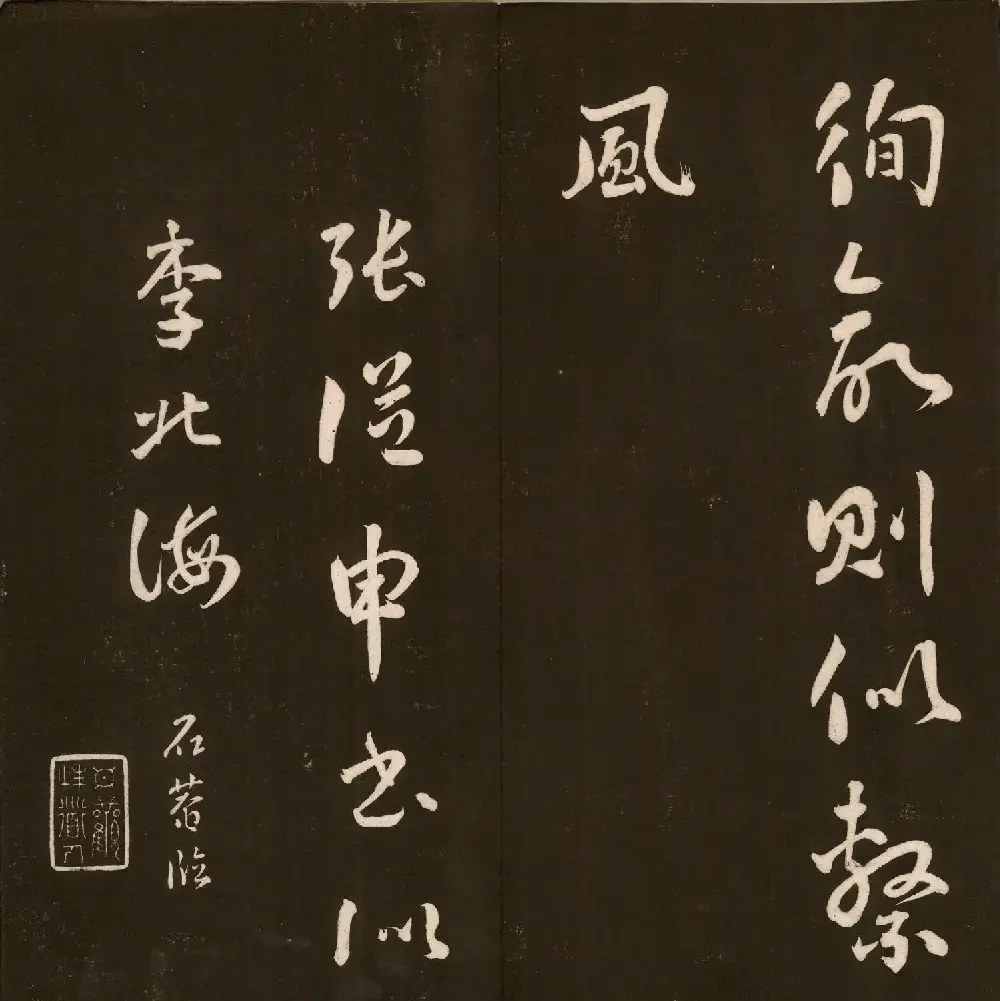 徇則似繫
風
張從申書似
李北海
石菴臨